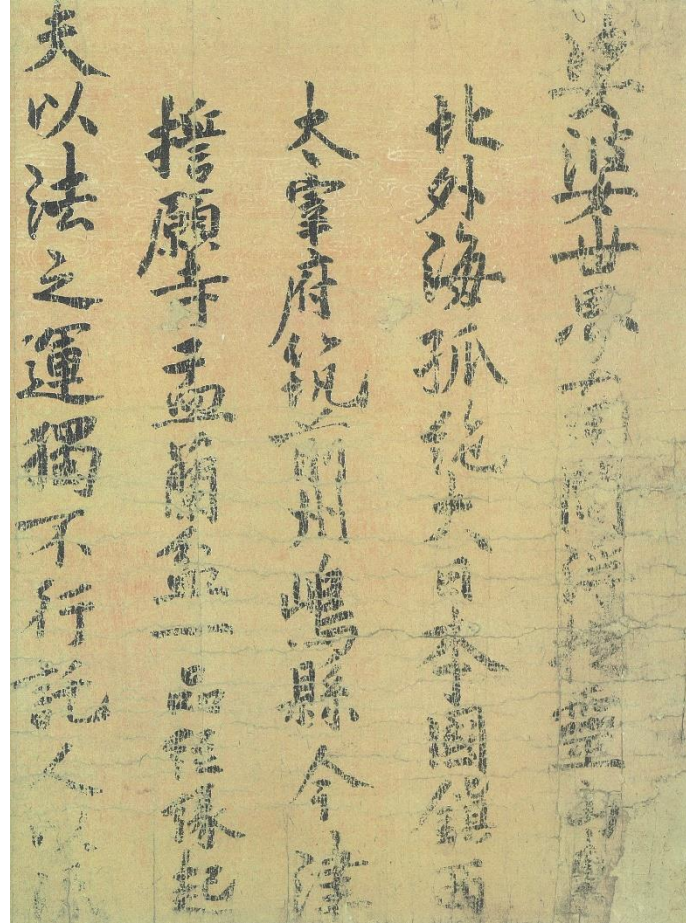 娑婆世界南閻浮提靈山東
北外海孤絶大日本國鎮西
太宰府筑前州嶋縣今津
誓願寺盂蘭盆一品經縁起
夫以法之運獨不行託人以